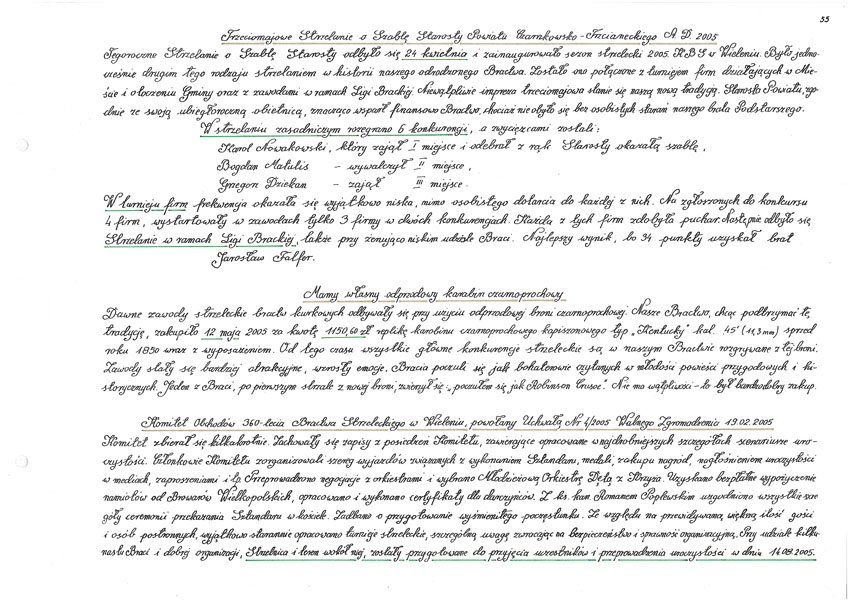 55
Trzeciomajowe Strzelanie o Szablę Starosty Powiatu Czarnkowsko-Trzcianeckiego A.D. 2005
Tegoroczne Strzelanie o Szablę Starosty odbyło się 24 kwietnia i zainaugurowało sezon strzelecki 2005 KBS w Wieleniu. Było jedno-
cześnie drugim tego rodzaju strzelaniem w historii naszego odrodzonego Bractwa. Zostało ono połączone z turniejem firm działających w Mie-
ście i otoczeniu Gminy oraz z zawodami w ramach Ligi Brackiej. Niewątpliwie impreza trzeciomajowa stanie się naszą nową tradycją. Starosta Powiatu, zgo-
dnie ze swoją ubiegłoroczną obietnicą, znacząco wsparł finansowo Bractwo, chociaż nie obyło się bez osobistych starań naszego brata Podstarszego.
W strzelaniu zasadniczym rozegrano 6 konkurencji, a zwycięzcami zostali:
Karol Nowakowski, który zajął I miejsce i odebrał z rąk Starosty okazałą szablę,
Bogdan Matulis - wywalczył II miejsce,
Grzegorz Dziekan - zajął III miejsce.
W turnieju firm frekwencja okazała się wyjątkowo niska, mimo osobistego dotarcia do każdej z nich. Na zgłoszonych do konkursu
4 firm, wystartowały w zawodach tylko 3 firmy w dwóch konkurencjach. Każda z tych firm zdobyła puchar. Następnie odbyło się
Strzelanie w ramach Ligi Brackiej, także przy żenująco niskim udziale Braci. Najlepszy wynik, bo 34 punkty uzyskał brat
Jarosław Falfer.
Mamy własny odprzodowy karabin czarnoprochowy
Dawne zawody strzeleckie bractw kurkowych odbywały się przy użyciu odprzodowej broni czarnoprochowej. Nasze Bractwo, chcąc podtrzymać tę
tradycję, zakupiło 12 maja 2005 za kwotę 1150,60 zł replikę karabinu czarnoprochowego kapiszonowego typ "Kentucky" kal. 45' (11,3mm) sprzed
roku 1850 wraz z wyposażeniem. Od tego czasu wszystkie główne konkurencje strzeleckie są w naszym Bractwie rozgrywane z tej broni.
Zawody stały się bardziej atrakcyjne, wzrosły emocje. Bracia poczuli się jak bohaterowie czytanych w młodości powieści przygodowych i hi-
storycznych. Jeden z Braci, po pierwszym strzale z nowej broni, zwierzył się: "poczułem się jak Robinson Crusoe". Nie ma wątpliwości - to był bardzo dobry zakup.
Komitet Obchodów 360-lecia Bractwa Strzeleckiego w Wieleniu, powołany Uchwałą Nr 4/2005 Walnego Zgromadzenia 19.02.2005
Komitet zbierał się kilkakrotnie. Zachowały się zapisy z posiedzeń Komitetu, zawierające opracowane w najdrobniejszych szczegółach scenariusze uro-
czystości. Członkowie Komitetu zorganizowali szereg wyjazdów związanych z wykonaniem Sztandaru, medali, zakupu nagród, nagłośnieniem uroczystości
w mediach, zaproszeniami i t.p. Przeprowadzono negocjacje z orkiestrami i wybrano Młodzieżową Orkiestrę Dętą z Stryża. Uzyskano bezpłatne wypożyczenie
namiotów od Browarów Wielkopolskich, opracowano i wykonano certyfikaty dla darczyńców. Z ks. kan. Romanem Poplewskim uzgodniono wszystkie szcze-
góły ceremonii przekazania Sztandaru w kościele. Zadbano o przygotowanie wyśmienitego poczęstunku. Ze względu na przewidywaną większą ilość gości
i osób postronnych, wyjątkowo starannie opracowano turnieje strzeleckie, szczególną uwagę zwracając na bezpieczeństwo i sprawność organizacyjną. Przy udziale kilku-
nastu Braci i dobrej organizacji, Strzelnica i teren wokół niej, zostały przygotowane do przyjęcia uczestników i przeprowadzenia uroczystości w dniu 14.08.2005.